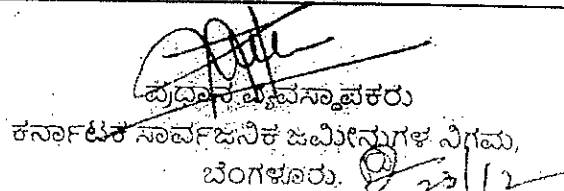 ಪ್ರಧಾನ ವ್ಯವಸ್ಥಾಪಕರು
ಕರ್ನಾಟಕ ಸಾರ್ವಜನಿಕ ಜಮೀನುಗಳ ನಿಗಮ,
ಬೆಂಗಳೂರು. 23/12